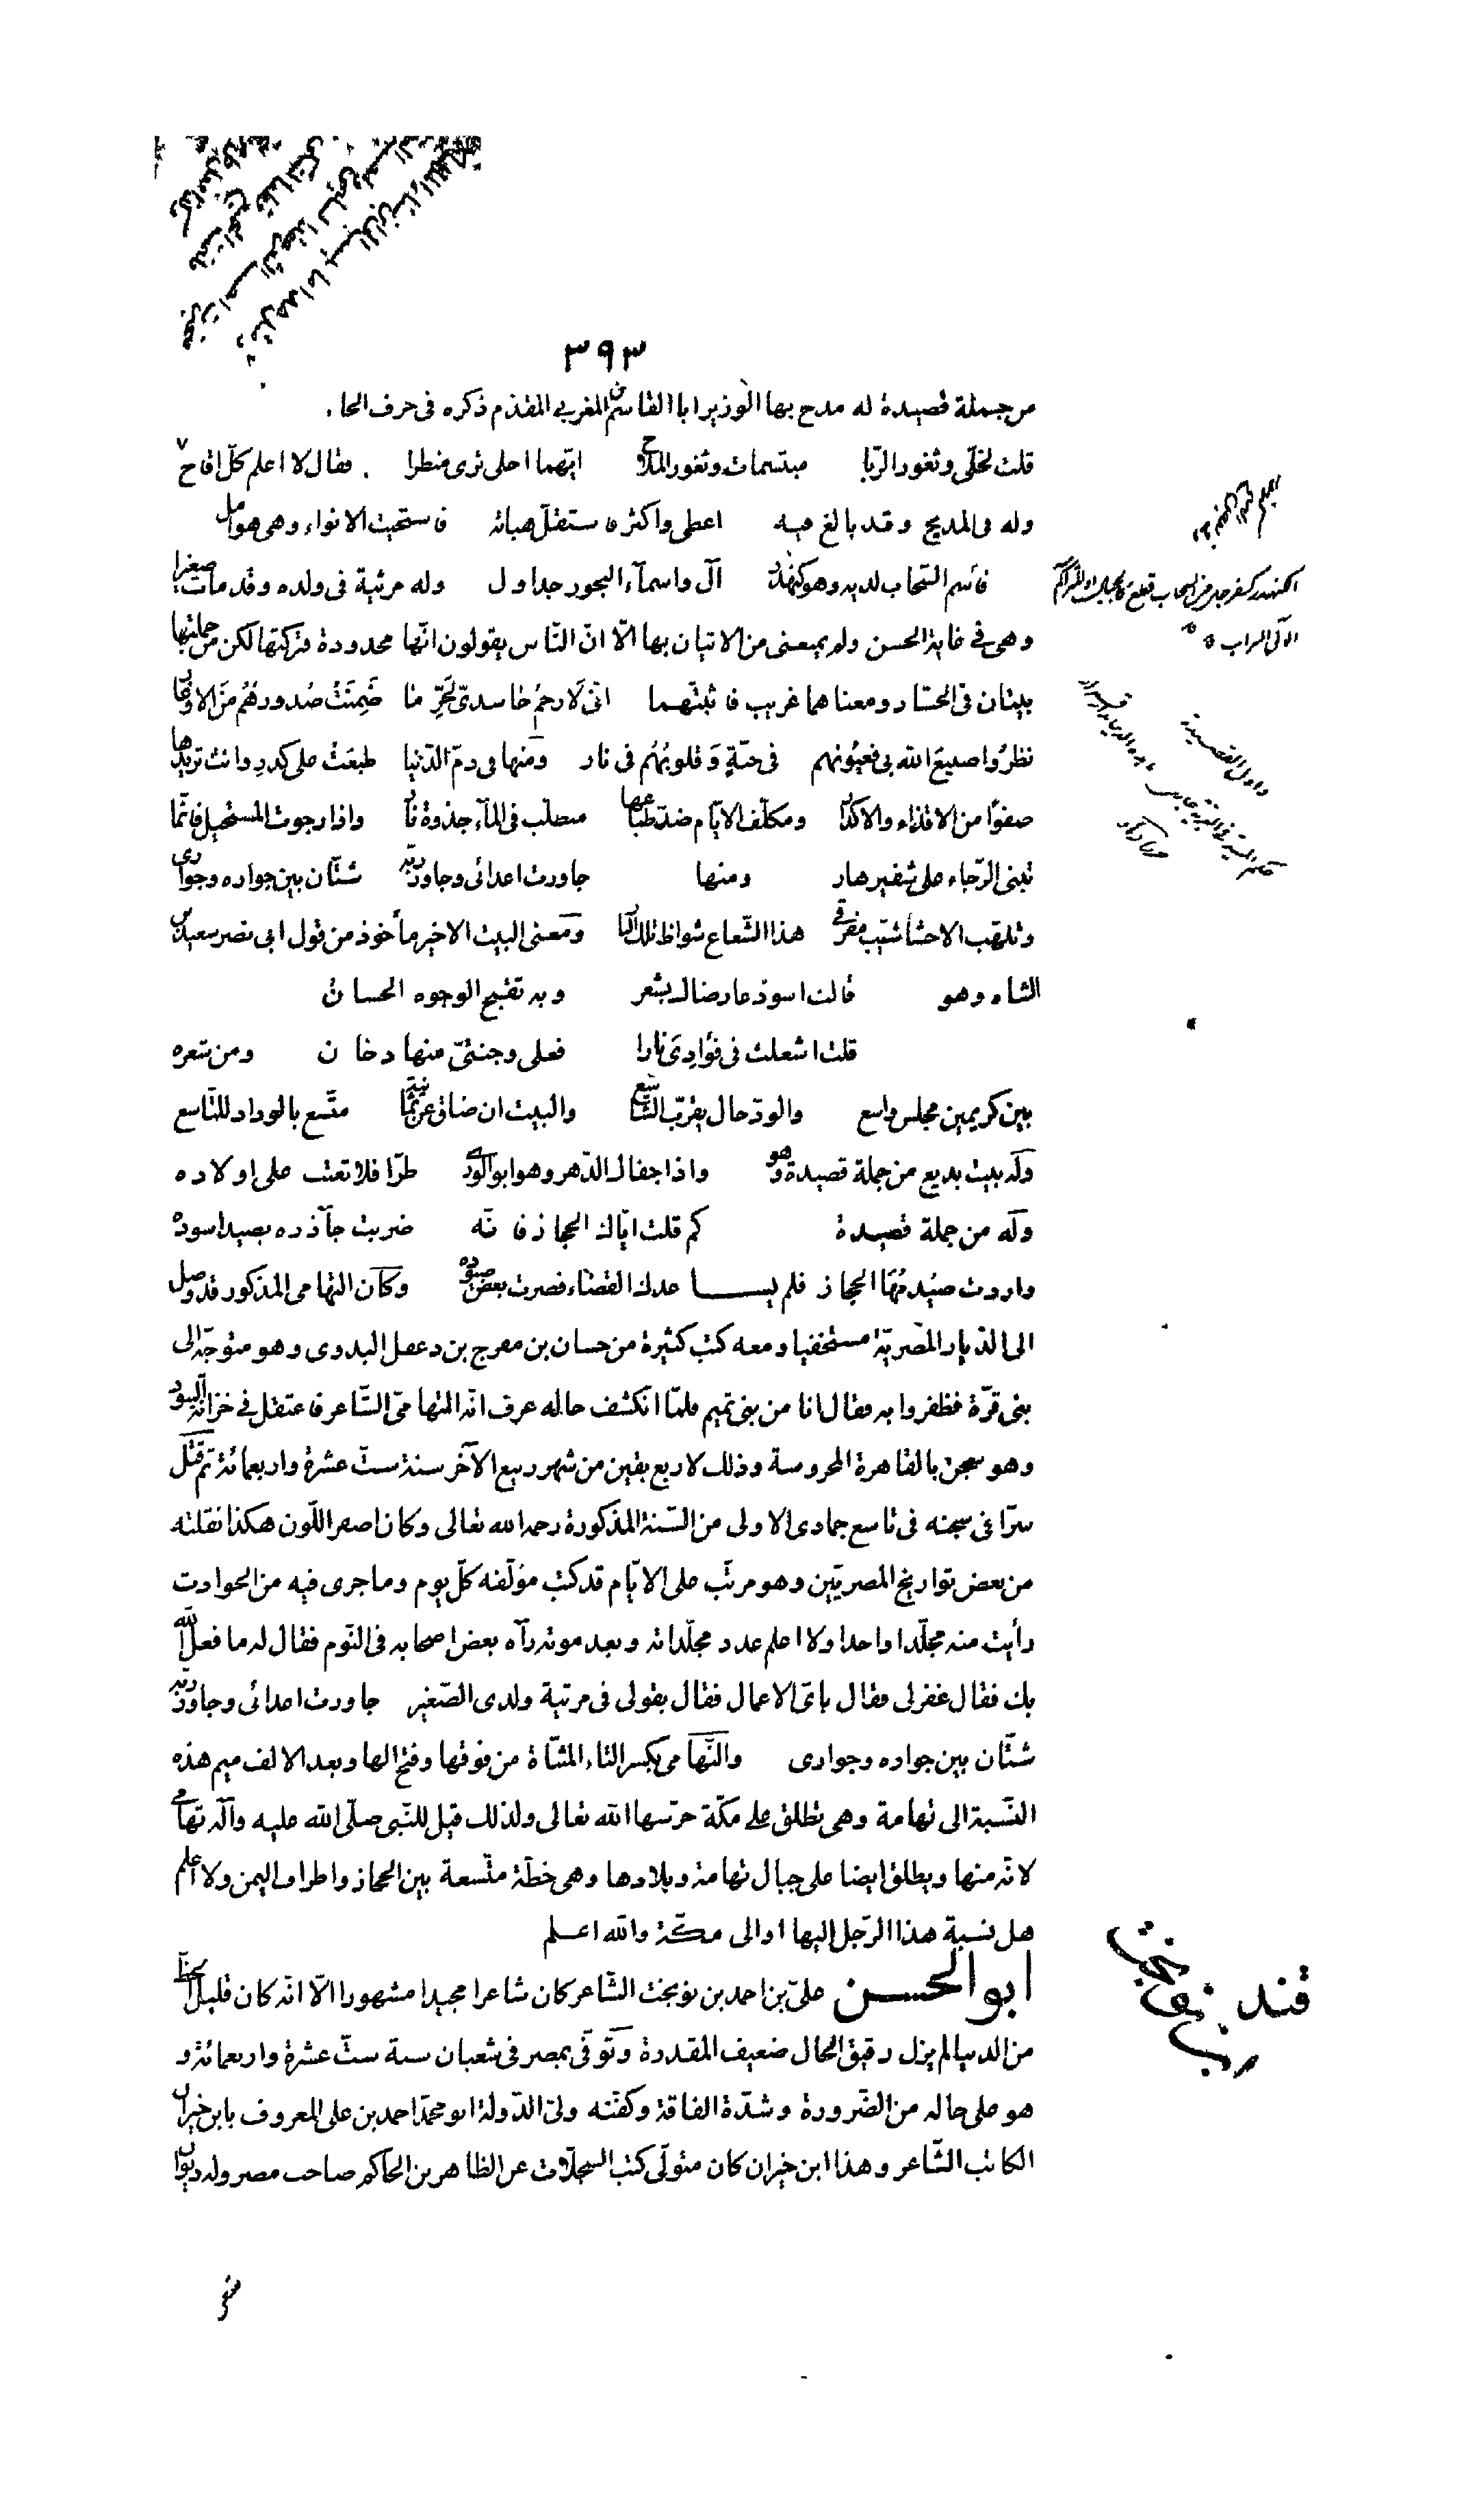 ٣٩٣
من جملة قصيدة له مدح بها الوزير ابا القاسم بن المغربى المقدم ذكره فى حرف الحاء
قلت لخلّى وثغور الرّبا مبتسمات وثغور الملاح ايّهما احلى ترى منظرا فقال لا اعلم كلّ اقاح
وله فى المديح وقد بالغ فيه اعطى واكثر فاستقلّ هباته فاستحيت الانواء وهى هوامل
فاسم السّحاب لديه وهو كنهور آل واسمآء البحور جداول وله مرثية فى ولده وقد مات صغيرا
وهى فى غاية الحسن ولم يمنعنى من الاتيان بها الّا انّ النّاس يقولون انّها محدودة فتركتها لكن من جملتها
بيتان فى الحسّاد ومعناهما غريب فاثبتّهما انّى لَارحمُ حاسدىّ لحَرِّ ما ضَمِنَتْ صُدورهُم مِنَ الاوغار
نظرُوا صنيعَ الله بى فعيُونهم فى جنّةٍ وَقلوبُهُم فى نار ومنها فى ذمّ الدّنيا طبعَتْ على كدرِ وانت تريدها
صفوًا من الاقذاء والاكدار ومكلّف الايّام ضدّ طباعها متطلّب فى المآء جذوة نار واذا رجوت المستحيل فانّما
تبنى الرّجاء على شفير هار ومنها جاورت اعدائى وجاور ربّه شتّان بين جواره وجوارى
وتلهّب الاحشآ شيّب مفرقى هذا الشّعاع شواظ تلك النار ومعنى البيت الاخير مأخوذ من قول ابى نصر سعيد بن
الشاه وهو قالت اسودّ عارضاك بشعر وبه تقبح الوجوه الحسان
قلت اشعلت فى فؤادِىَ نارا فعلى وجنتىّ منها دخان ومن شعره
بين كريمين مجلس واسع والودّ حال يقرّب الشّاسع والبيت ان ضاق عن ثمانية متّسع بالوداد للتّاسع
وله بيت بديع من جملة قصيدة وهو واذا جفاك الدّهر وهو ابو الورى طرّا فلا تعتب على اولاده
وله من جملة قصيدة كم قلت ايّاك الحجاز فانّه ضريت جآذره بصيد اسوده
واردت صيْد مُهَا الحجاز فلم يساعدك القضاء فصرت بعض صيوده وكان التهامى المذكور قد وصل
الى الدّيار المصريّة مستخفيا ومعه كتب كثيرة من حسان بن مفرج بن دعفل البدوى وهو متوجّه الى
بنى قرّة فظفروا به فقال انا من بنى تميم فلمّا انكشف حاله عرف انّه التهامىّ الشّاعر فاعتقل فى خزانة البنود
وهو سجن بالقاهرة المحروسة وذلك لاربع بقين من شهر ربيع الآخر سنة ستّ عشرة واربعمائة ثم قتل
سرّا فى سجنه فى تاسع جمادى الاولى من السّنة المذكورة رحمه الله تعالى وكان اصفر اللّون هكذا نقلته
من بعض تواريخ المصريّين وهو مرتّب على الايّام قد كتب مؤلّفه كلّ يوم وما جرى فيه من الحوادث
رأيت منه مجلّدا واحدا ولا اعلم عدد مجلّداته وبعد موته رآه بعض اصحابه فى النّوم فقال له ما فعل الله
بك فقال غفر لى فقال باىّ الاعمال فقال بقولى فى مرتبة ولدى الصّغير جاورت اعدائى وجاور ربّه
شتّان بين جواره وجوارى والتّهامى بكسر التاء المثنّاة من فوقها وفتح الهاء وبعد الالف ميم هذه
النّسبة الى تهامة وهى تطلق على مكّة حرسها الله تعالى ولذلك قيل للنّبى صلّى الله عليه وآله تهامى
لانّه منها ويطلق ايضا على جبال تهامة وبلادها وهى خطّة متّسعة بين الحجاز واطراف اليمن ولا اعلم
هل نسبة هذا الرّجل اليها او الى مكّة والله اعلم
ابو الحسن علىّ بن احمد بن نوبخت الشّاعر كان شاعرا مجيدا مشهورا الّا انّه كان قليل الحظّ
من الدنيا لم يزل رقيق الحال ضعيف المقدرة وتوفّى بمصر فى شعبان سنة ستّ عشرة واربعمائة و
هو على حاله من الضّرورة وشدّة الفاقة وكفّنه ولىّ الدّولة ابو محمّد احمد بن على المعروف بابن خيران
الكاتب الشّاعر وهذا ابن خيران كان متولّى كتب السجلّات عن الظاهر بن الحاكم صاحب مصر وله ديوان
ابن نوبخت